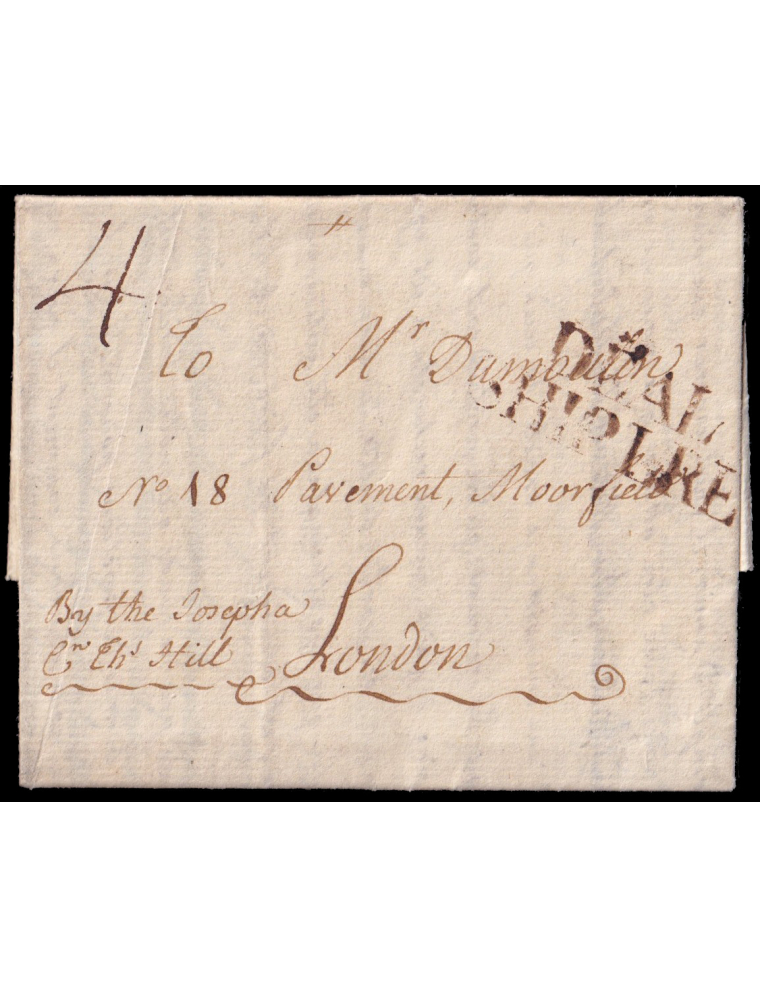 4
To Mr Dumoulin
DEAL
SHIP LRE
No 18 Pavement, Moorfields
By the Josepha
Cn Ths Hill
London